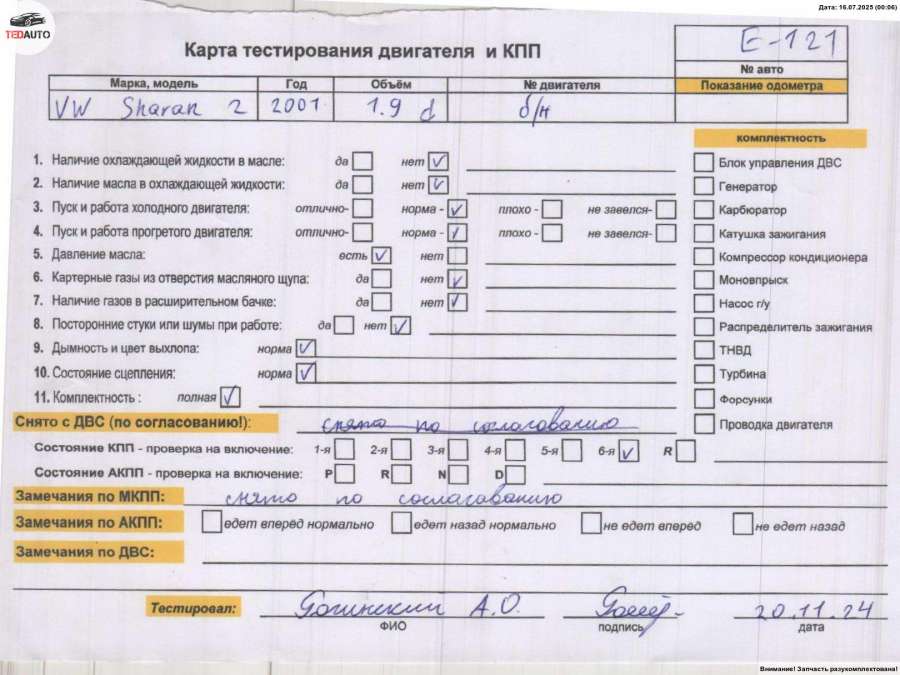 Дата: 16.07.2025 (00:06)
TEDAUTO
Карта тестирования двигателя и КПП
E-121
№ авто
Марка, модель Год Объём № двигателя Показание одометра
VW Sharan 2 2001 1.9 d б/н
комплектность
1. Наличие охлаждающей жидкости в масле: да нет Блок управления ДВС
2. Наличие масла в охлаждающей жидкости: да нет Генератор
3. Пуск и работа холодного двигателя: отлично- норма - плохо - не завелся- Карбюратор
4. Пуск и работа прогретого двигателя: отлично- норма - плохо - не завелся- Катушка зажигания
5. Давление масла: есть нет Компрессор кондиционера
6. Картерные газы из отверстия масляного щупа: да нет Моновпрыск
7. Наличие газов в расширительном бачке: да нет Насос г/у
8. Посторонние стуки или шумы при работе: да нет Распределитель зажигания
9. Дымность и цвет выхлопа: норма ТНВД
10. Состояние сцепления: норма Турбина
11. Комплектность : полная Форсунки
Снято с ДВС (по согласованию!): снято по согласованию Проводка двигателя
Состояние КПП - проверка на включение: 1-я 2-я 3-я 4-я 5-я 6-я R
Состояние АКПП - проверка на включение: P R N D
Замечания по МКПП: снято по согласованию
Замечания по АКПП: едет вперёд нормально едет назад нормально не едет вперёд не едет назад
Замечания по ДВС:
Тестировал: А.О. 20.11.24
ФИО подпись дата
Внимание! Запчасть разукомплектована!